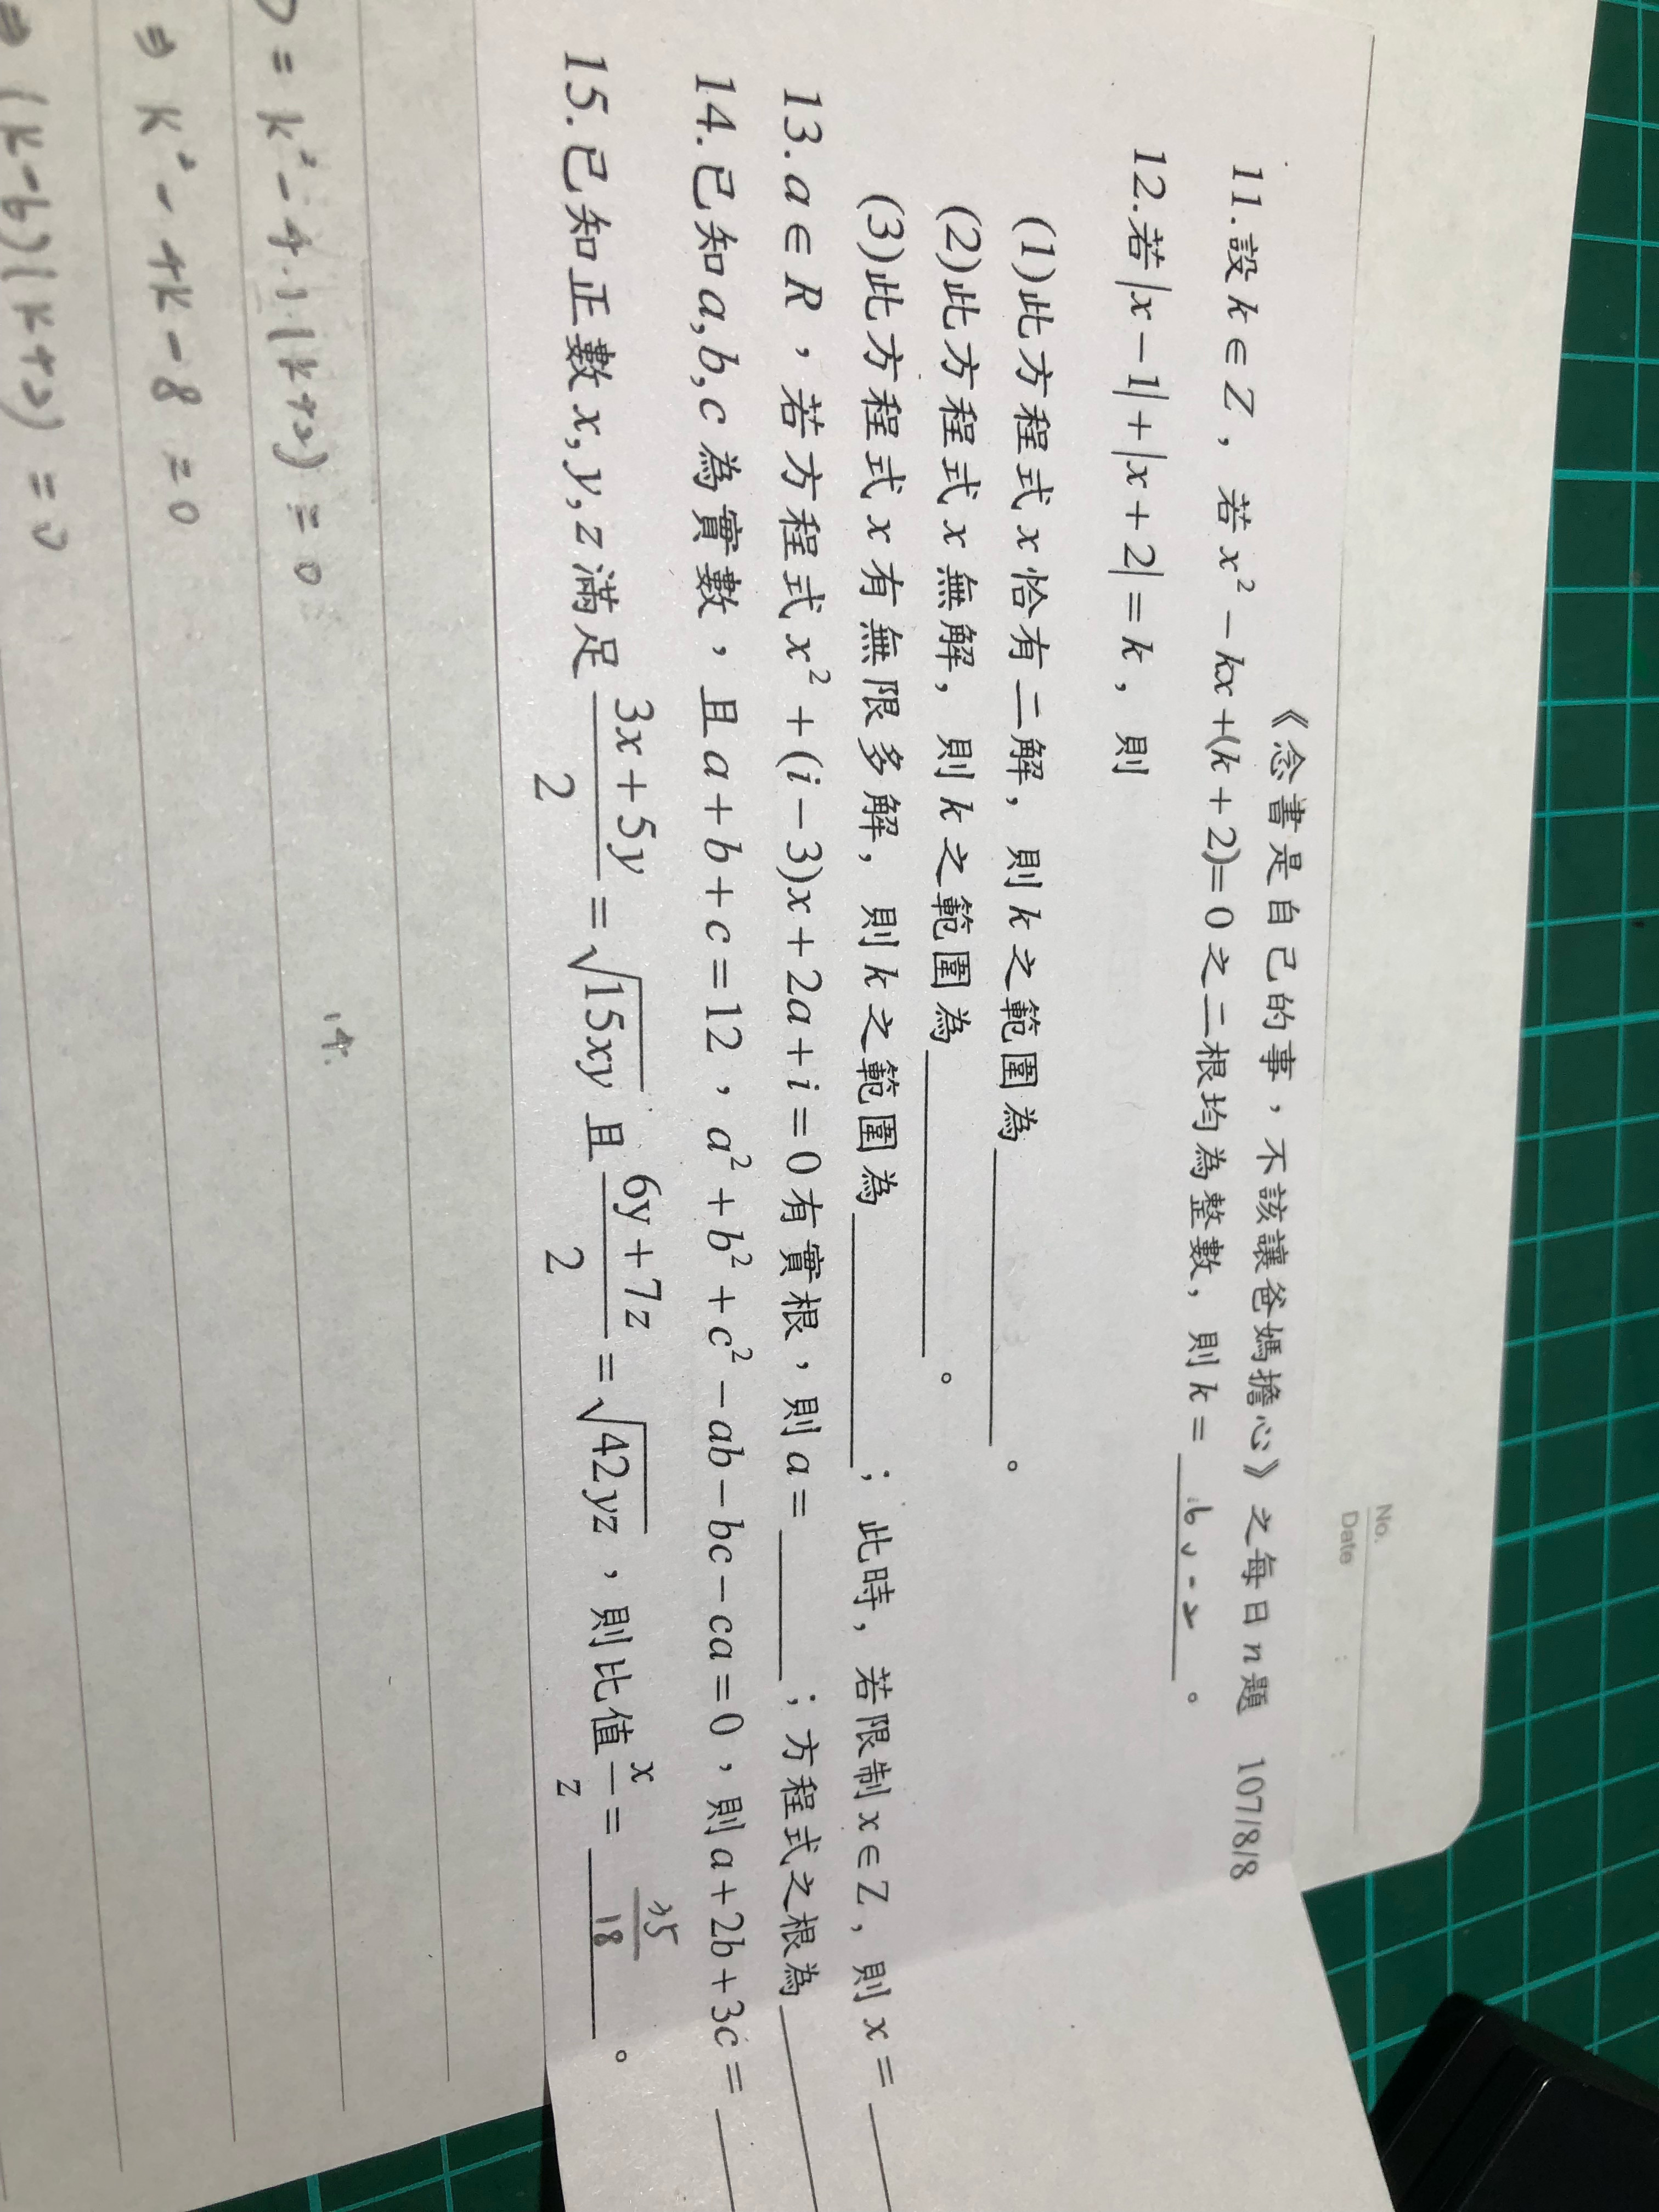 No.
Date : :
《念書是自己的事，不該讓爸媽擔心》之每日n題 107/8/8
11.設k∈Z，若x²-kx+(k+2)=0之二根均為整數，則k= 6,-2 。
12.若|x-1|+|x+2|=k，則
(1)此方程式x恰有二解，則k之範圍為＿＿＿＿。
(2)此方程式x無解，則k之範圍為＿＿＿＿。
(3)此方程式x有無限多解，則k之範圍為＿＿＿＿；此時，若限制x∈Z，則x=
13.a∈R，若方程式x²+(i-3)x+2a+i=0有實根，則a=＿＿＿＿；方程式之根為
14.已知a,b,c為實數，且a+b+c=12，a²+b²+c²-ab-bc-ca=0，則a+2b+3c=
15.已知正數x,y,z滿足(3x+5y)/2=√15xy 且(6y+7z)/2=√42yz，則比值x/z= 35/18 。
14.
= k²-4·1·(k+2)=0
⇒ k²-4k-8=0
⇒ (k-6)(k+2)=0